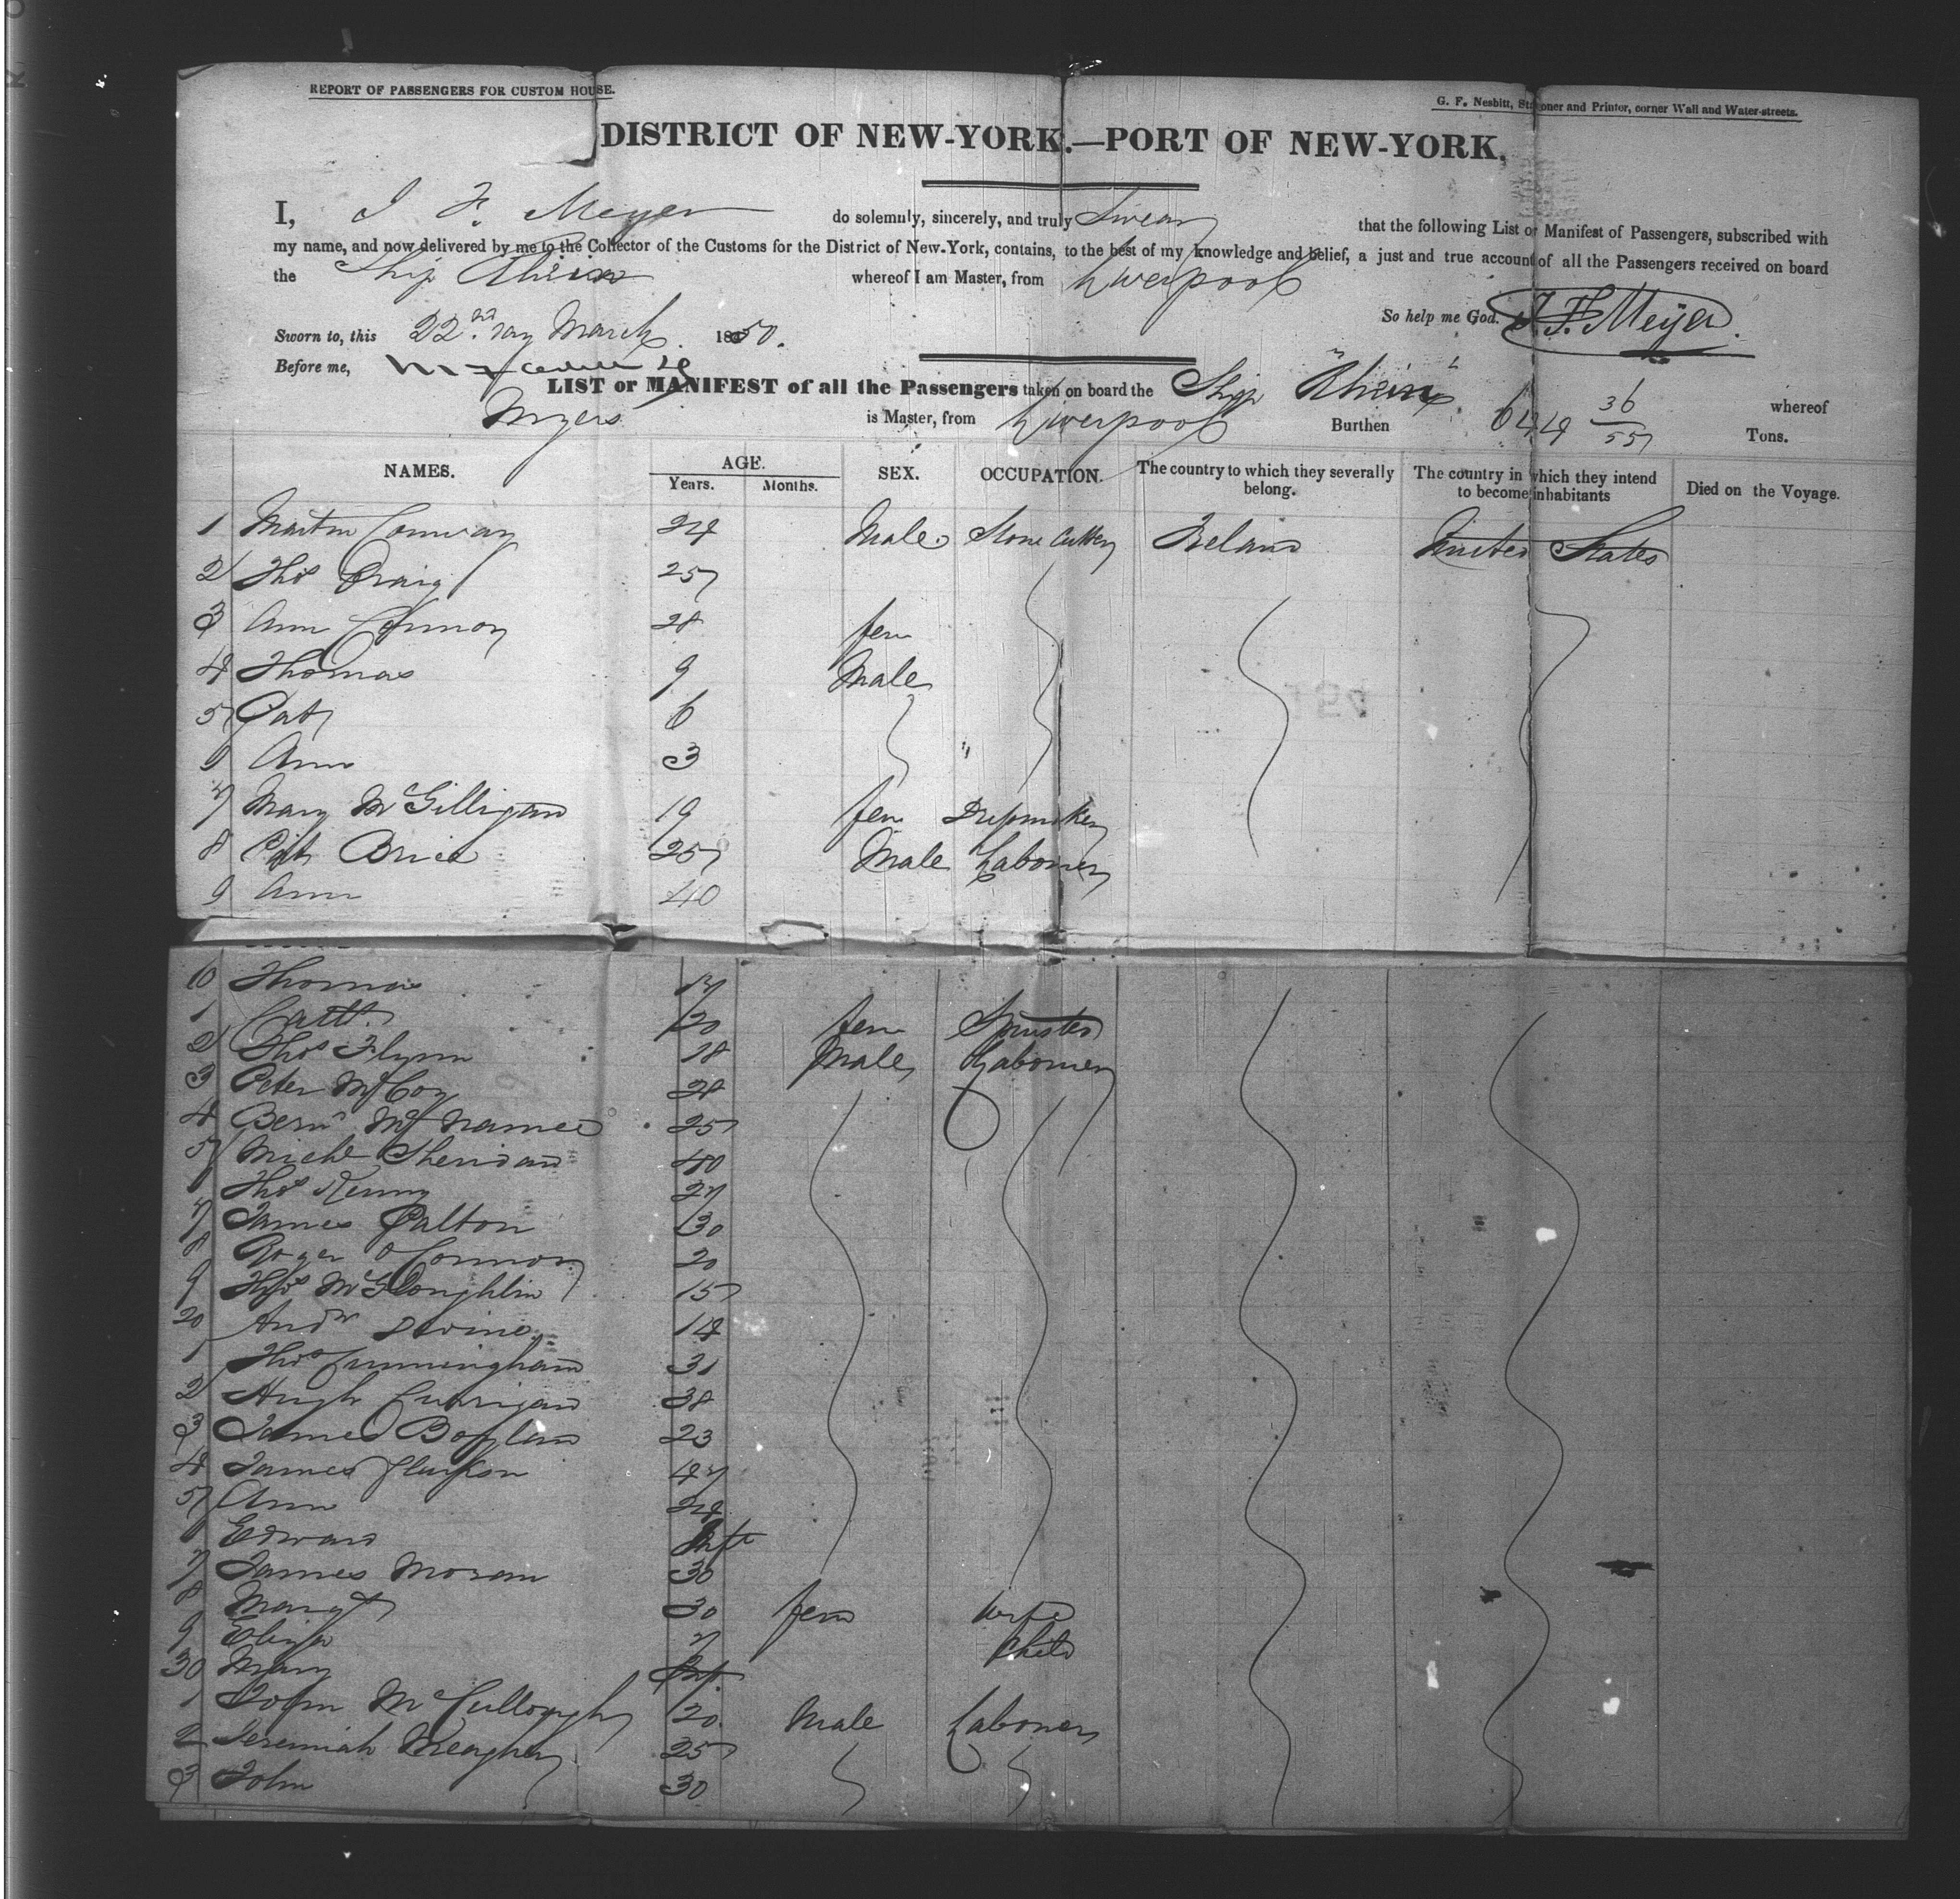 REPORT OF PASSENGERS FOR CUSTOM HOUSE.
G. F. Nesbitt, Stationer and Printer, corner Wall and Water-streets.
DISTRICT OF NEW-YORK.—PORT OF NEW-YORK.
I, J F. Meyer do solemnly, sincerely, and truly Swear that the following List or Manifest of Passengers, subscribed with
my name, and now delivered by me to the Collector of the Customs for the District of New-York, contains, to the best of my knowledge and belief, a just and true account of all the Passengers received on board
the Ship Rhein whereof I am Master, from Liverpool
So help me God. J. F. Meyer.
Sworn to, this 22nd day March 1850.
Before me,
LIST or MANIFEST of all the Passengers taken on board the Ship Rhein whereof
Myers is Master, from Liverpool Burthen 36/55 Tons.
NAMES. AGE. Years. Months. SEX. OCCUPATION. The country to which they severally belong. The country in which they intend to become inhabitants Died on the Voyage.
1 Martin Conway 24 Male Stone Cutter Ireland United States
2 Thos Craig 25
3 Ann Connor 28 fem
4 Thomas 9 Male
5 Pat 6
6 Ann 3 "
7 Mary McGilligan 19 fem Dressmaker
8 Pat Brice 25 Male Laborer
9 Ann 40
10 Thomas 17
1 Cathe 20 fem Spinster
2 Thos Flynn 18 Male Laborer
3 Peter McCoy 28
4 Bernd McNamee 25
5 Michl Sheridan 40
6 Thos Kenny 27
7 James Patton 30
8 Roger O'Connor 20
9 Thos McGloughlin 15
20 Andw Devine 14
1 Thos Cunningham 31
2 Hugh Currigan 38
3 James Boylan 23
4 James 47
5 Ann 24
6 Edward Inft
7 James Moran 30
8 Margt 30 fem Wife
9 Eliza 7 Child
30 Mary Inft
1 John McCullough 20 Male Laborer
2 Jeremiah Meagher 25
3 John 30